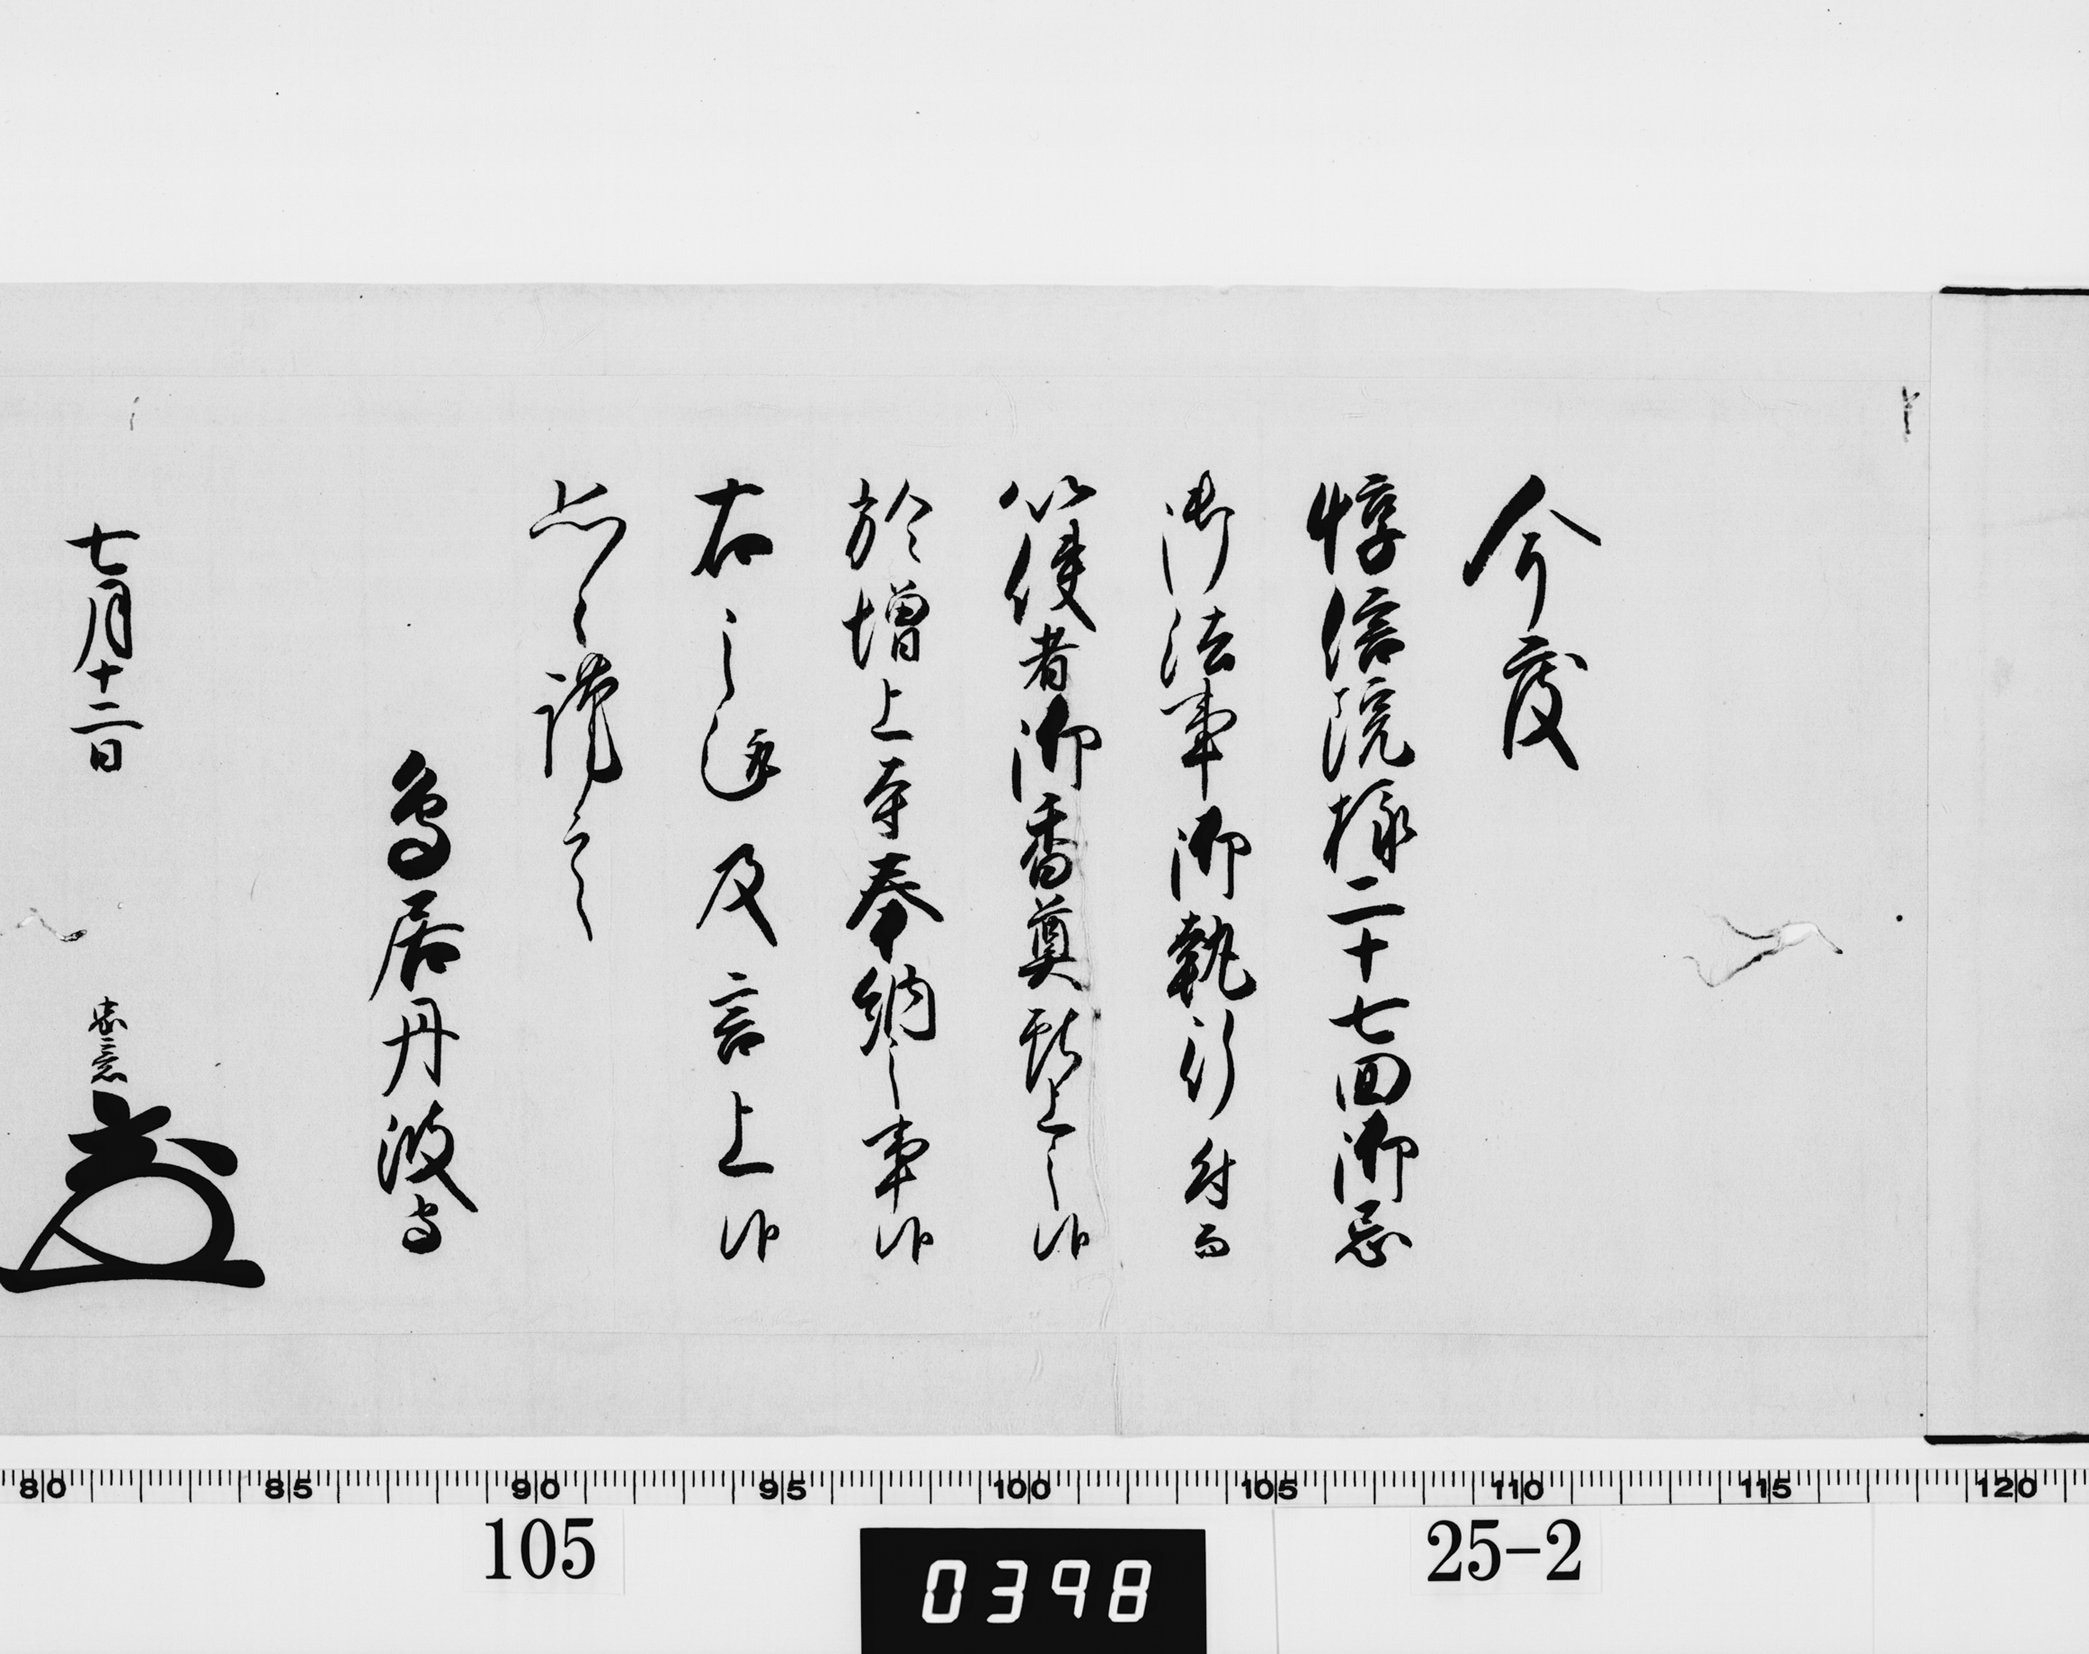 今度
惇信院様二十七回御忌
御法事御執行付而
以使者御香奠献上之候
於増上寺奉納之事候
右之趣及言上候
恐々謹言
鳥居丹波守
七月十二日
忠意
80 85 90 95 100 105 110 115 120
105
0398
25-2